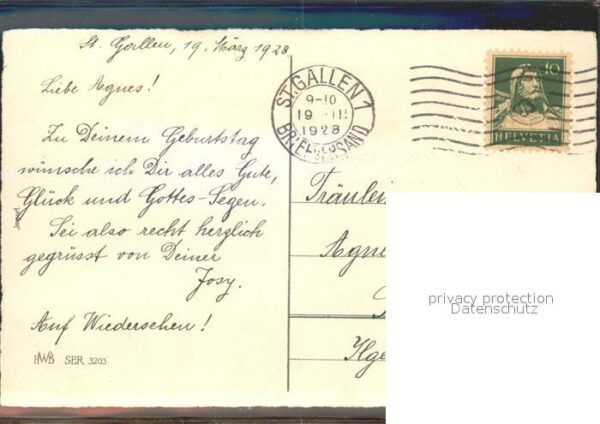 St. Gallen, 19. März 1928
Liebe Agnes!
Zu Deinem Geburtstag
wünsche ich Dir alles Gute,
Glück und Gottes-Segen.
Sei also recht herzlich
gegrüsst von Deiner
Josy.
Auf Wiedersehen!
HWB SER 3203
ST. GALLEN 1
9-10
19 III
1928
BRIEFVERSAND
10
HELVETIA
Fräulein
Agne
Ilge
privacy protection
Datenschutz